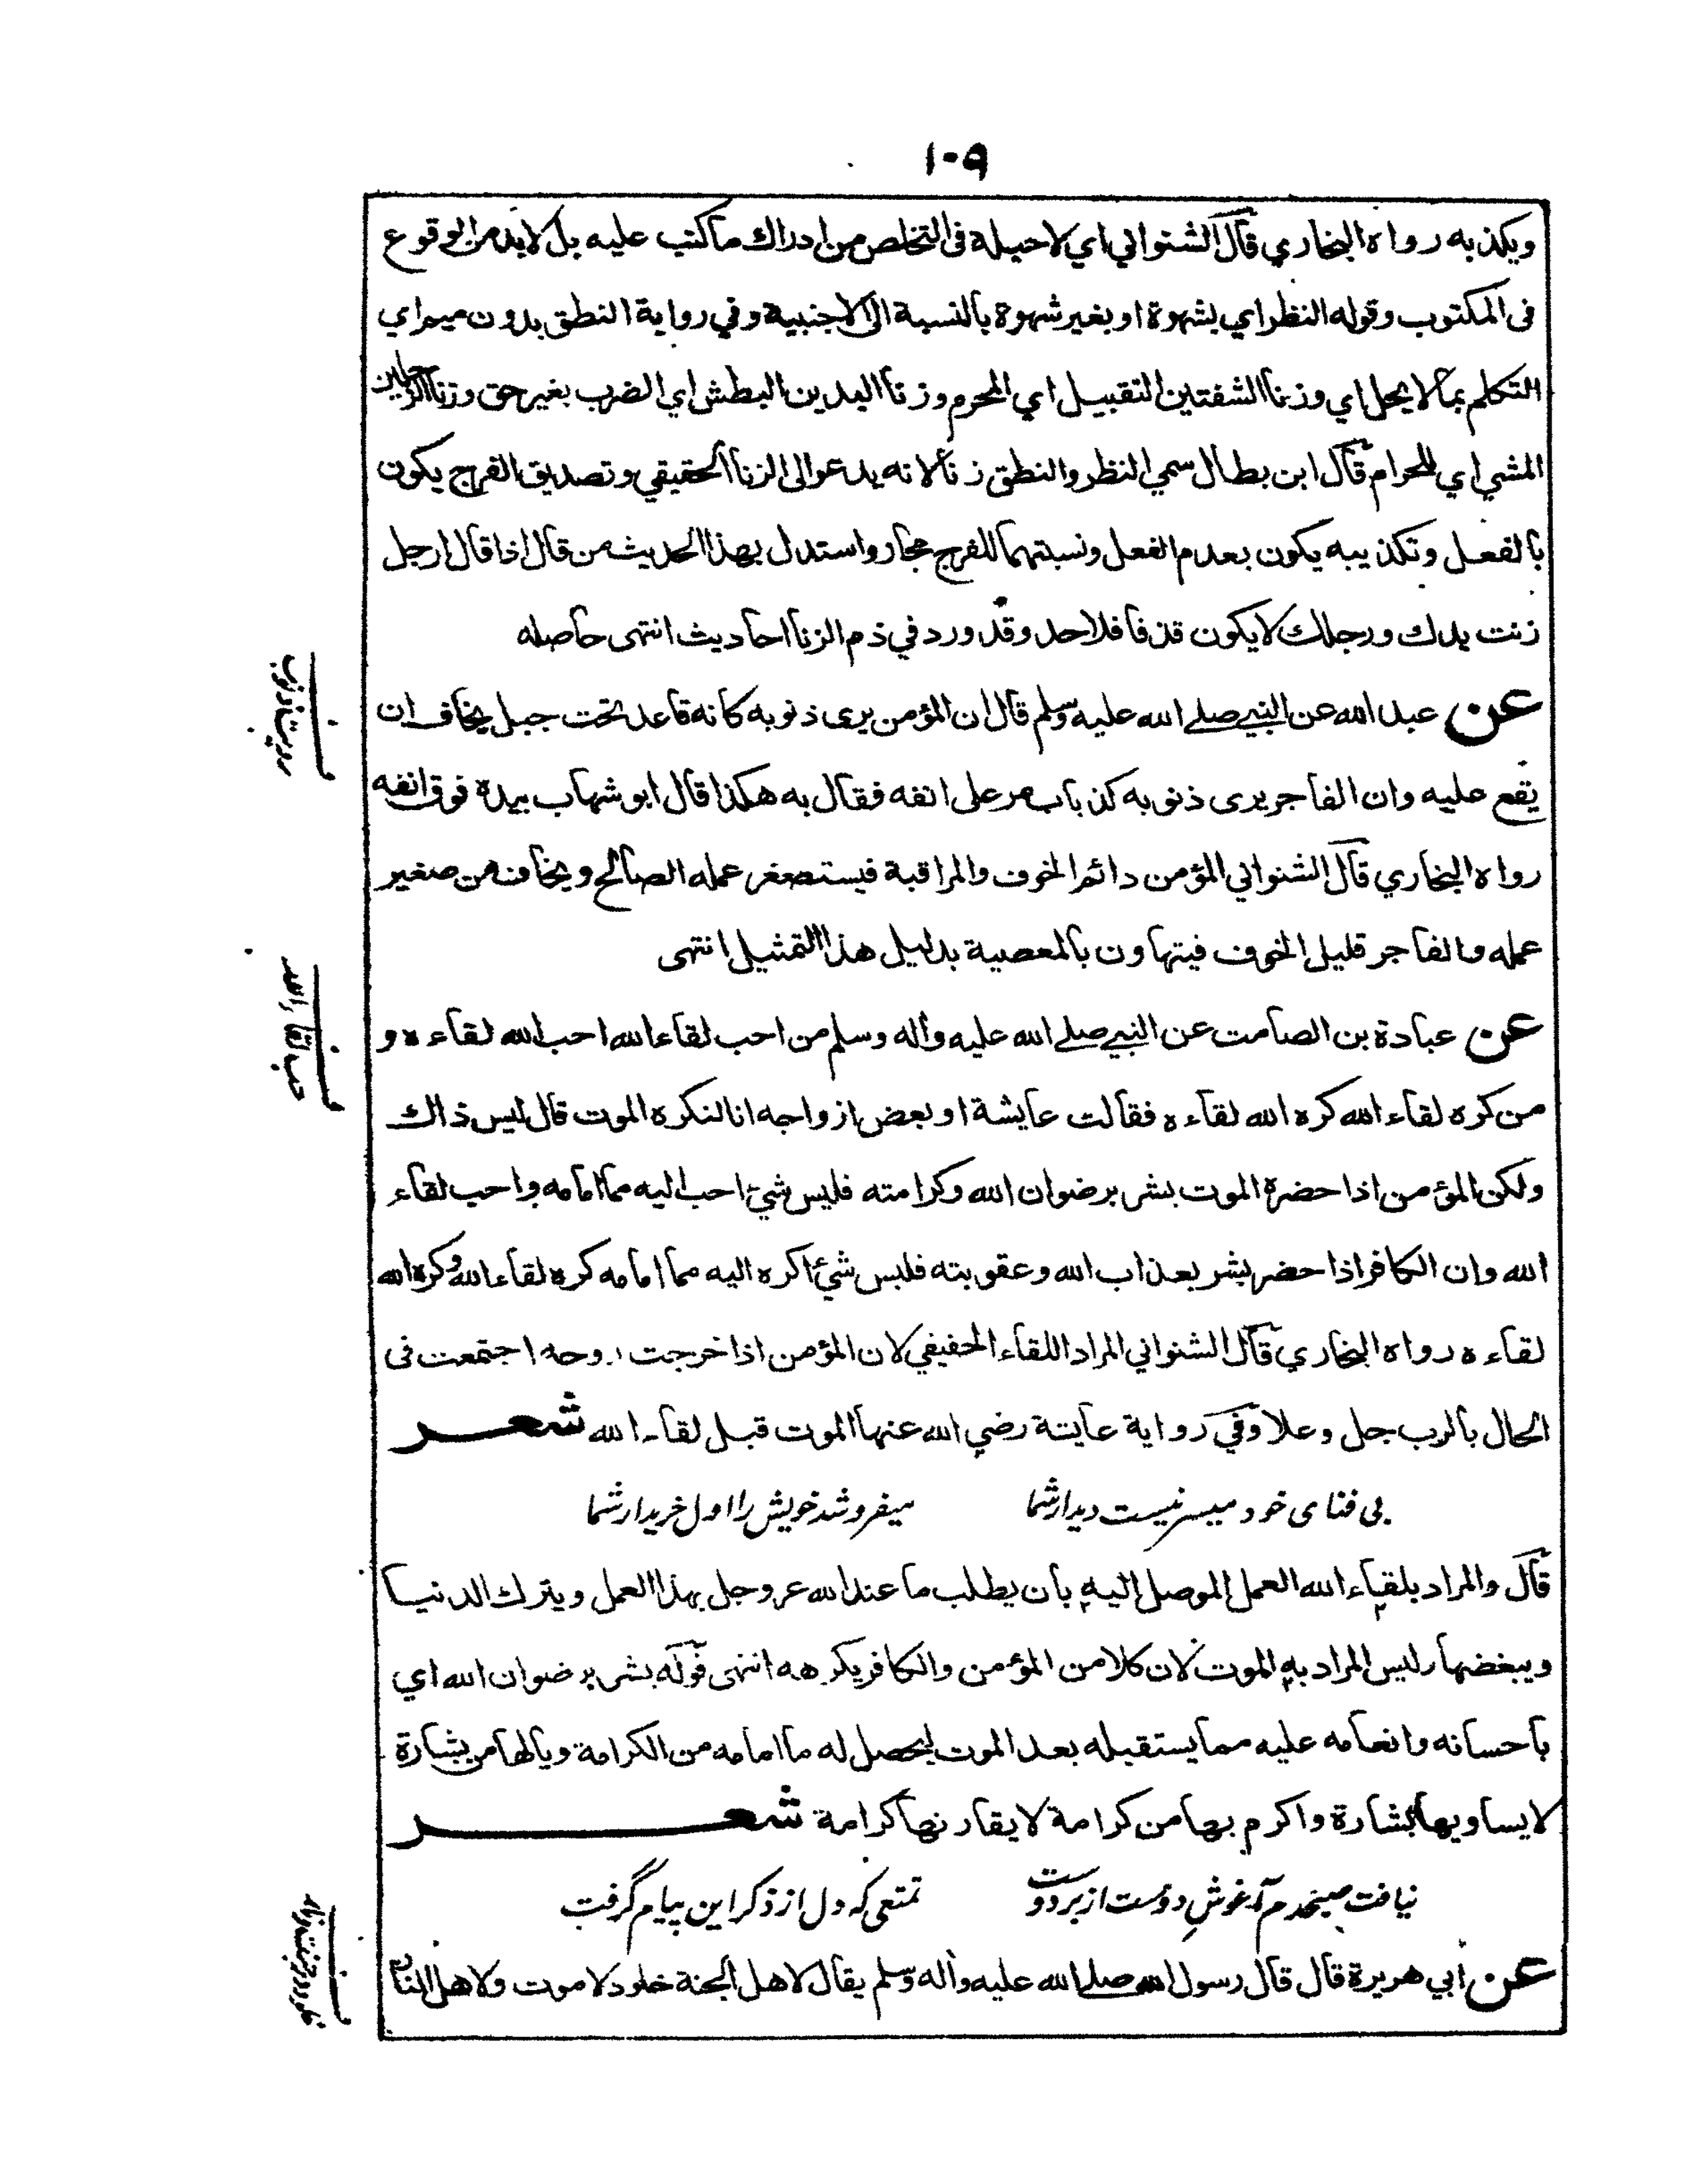 ١٠٩
ويكذبه رواه البخاري قال الشنواني اي لاحيلة فى التخلص من ادراك ما كتب عليه بل لابد من الوقوع
فى المكتوب وقوله النظر اي بشهوة او بغير شهوة بالنسبة الى الاجنبية وفي رواية النطق بدون ميم اي
التكلم بما لا يحل اي وزنا الشفتين التقبيل اي المحرم وزنا اليدين البطش اي الضرب بغير حق وزنا الرجلين
المشي اي للحرام قال ابن بطال سمي النظر والنطق زنا لانه يدعو الى الزنا الحقيقي وتصديق الفرج يكون
بالفعل وتكذيبه يكون بعدم الفعل ونسبتهما للفرج مجاز واستدل بهذا الحديث من قال اذا قال الرجل
زنت يدك ورجلك لا يكون قذفا فلا حد وقد ورد في ذم الزنا احاديث انتهى حاصله
عن عبد الله عن النبي صلے الله عليه وسلم قال ان المؤمن يرى ذنوبه كانه قاعد تحت جبل يخاف ان
يقع عليه وان الفاجر يرى ذنوبه كذباب مر على انفه فقال به هكذا قال ابو شهاب بيده فوق انفه
رواه البخاري قال الشنواني المؤمن دائم الخوف والمراقبة فيستصغر عمله الصالح ويخاف من صغير
عمله والفاجر قليل الخوف فيتهاون بالمعصية بدليل هذا التمثيل انتهى
عن عبادة بن الصامت عن النبي صلے الله عليه وآله وسلم من احب لقاء الله احب الله لقاءه و
من كره لقاء الله كره الله لقاءه فقالت عايشة او بعض ازواجه انا لنكره الموت قال ليس ذاك
ولكن المؤمن اذا حضره الموت بشر برضوان الله وكرامته فليس شيئ احب اليه مما امامه واحب لقاء
الله وان الكافر اذا حضر بشر بعذاب الله وعقوبته فليس شيئ اكره اليه مما امامه كره لقاء الله وكره الله
لقاءه رواه البخاري قال الشنواني المراد اللقاء الحقيقي لان المؤمن اذا خرجت روحه اجتمعت فى
الحال بالرب جل وعلا وفي رواية عايشة رضي الله عنها الموت قبل لقاء الله شعر
بى فناى خود ميسر نيست ديدار شما ميفروشد خويش را اول خريدار شما
قال والمراد بلقاء الله العمل الموصل اليه بان يطلب ما عند الله عز وجل بهذا العمل ويترك الدنيا
ويبغضها وليس المراد به الموت لان كلا من المؤمن والكافر يكرهه انتهى قوله بشر برضوان الله اي
باحسانه وانعامه عليه مما يستقبله بعد الموت ليحصل له ما امامه من الكرامة ويالها من بشارة
لا يساويها بشارة واكرم بها من كرامة لا يقارنها كرامة شعر
نيافت هيچدم آغوش دوست از بر دوست تمتعى كه دل از ذكر اين پيام گرفت
عن ابي هريرة قال قال رسول الله صلے الله عليه وآله وسلم يقال لاهل الجنة خلود لا موت ولاهل النار
ف رويت ذنوب
ف حب لقاء الله